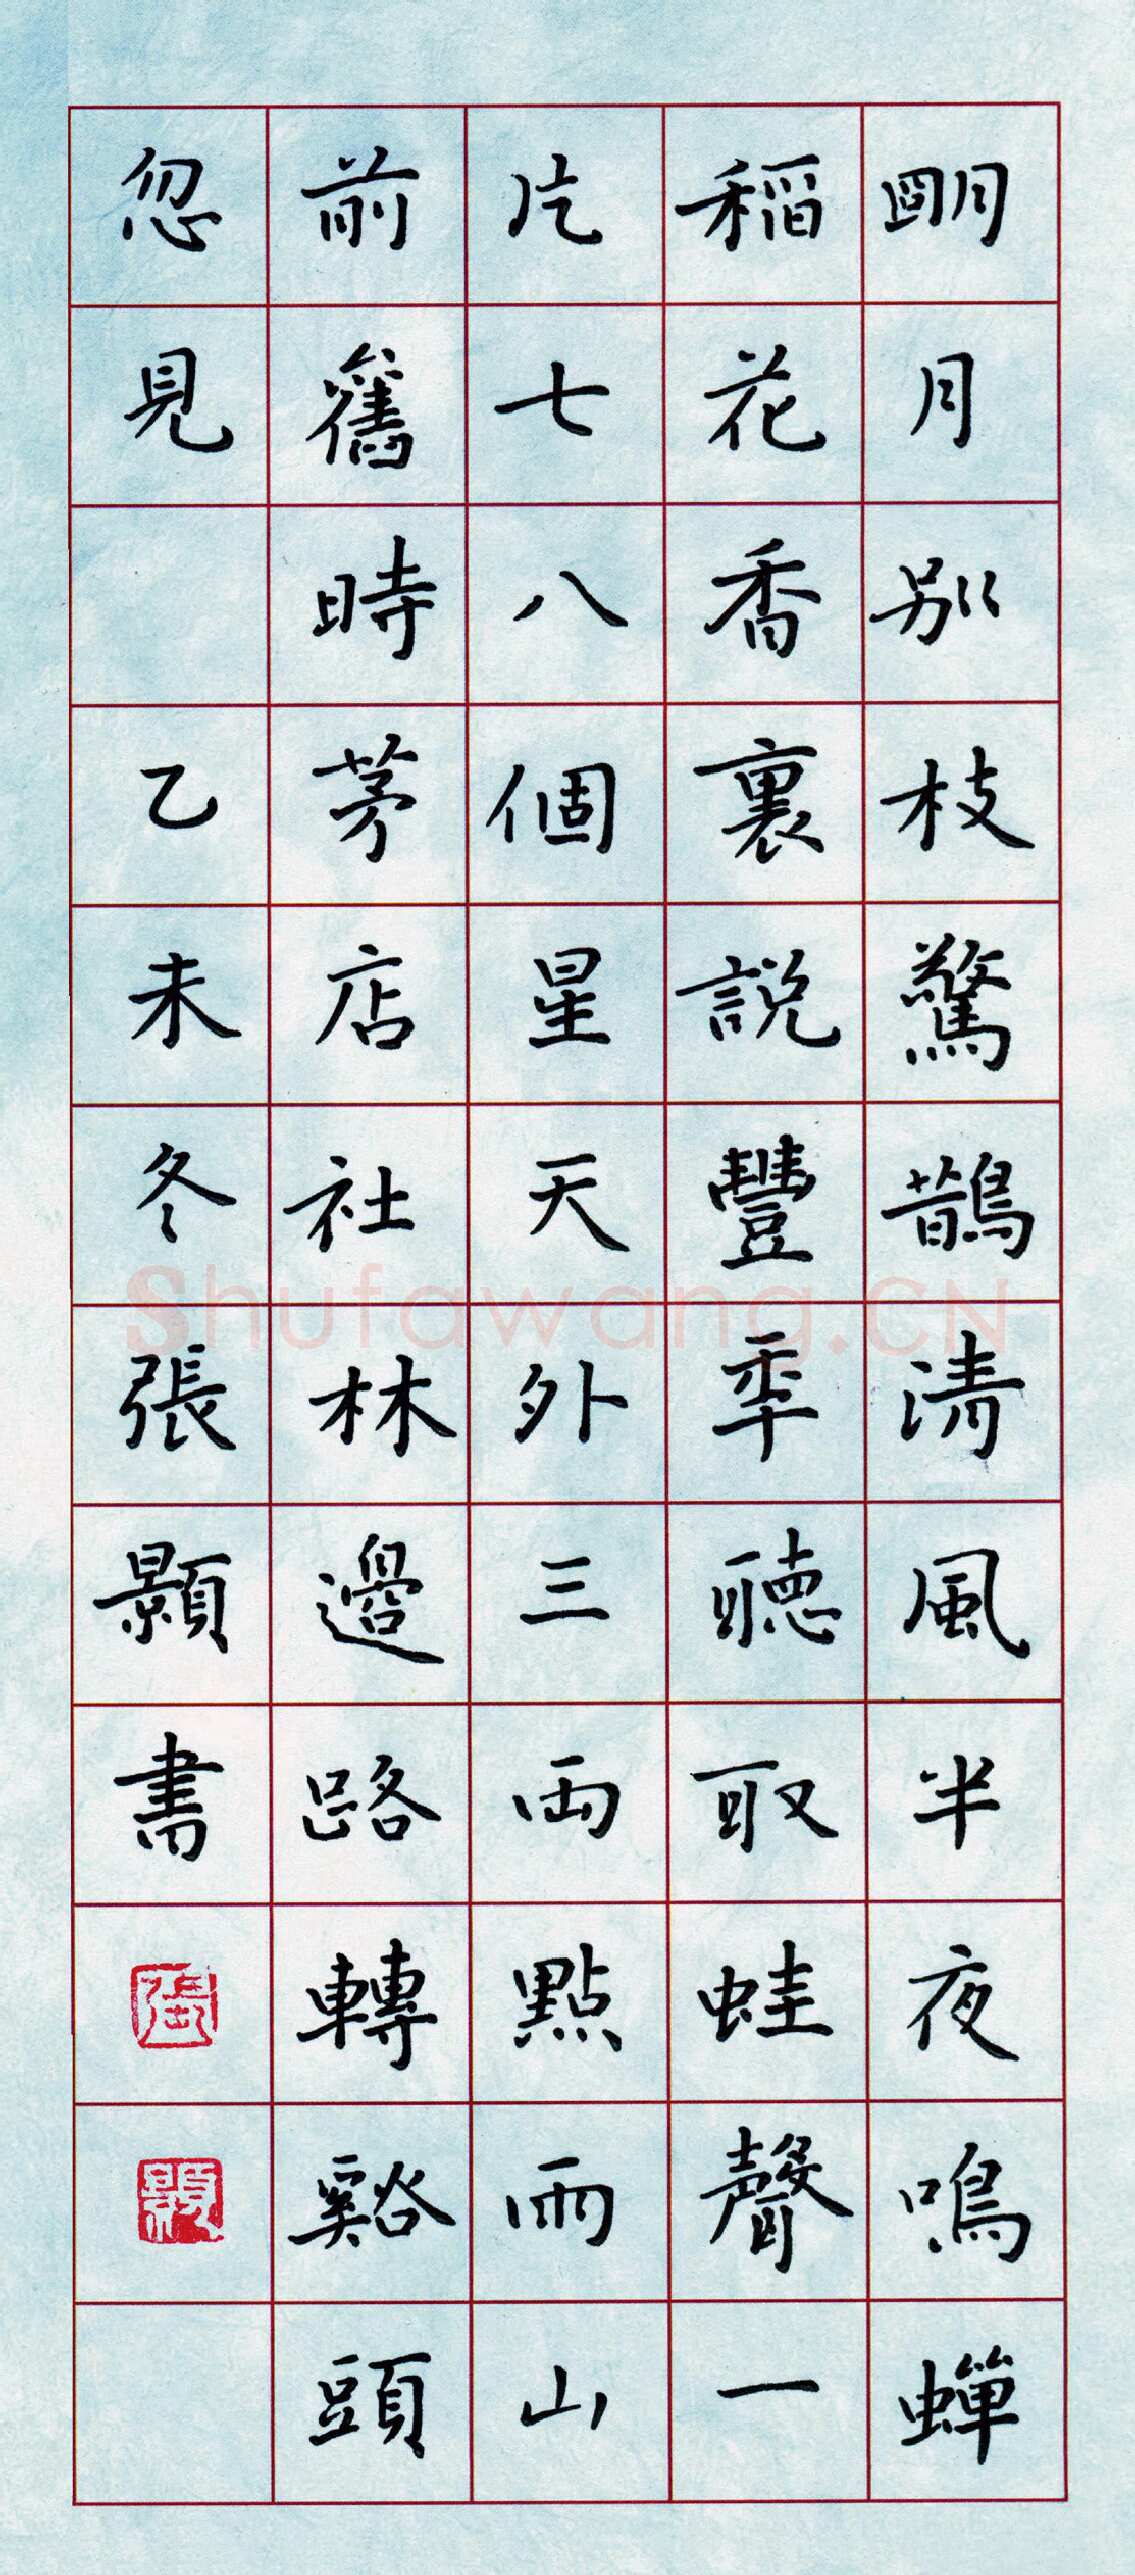 明月別枝驚鵲清風半夜鳴蟬
稻花香裏說豐年聽取蛙聲一
片七八個星天外三兩點雨山
前舊時茅店社林邊路轉谿頭
忽見 乙未冬張顥書
張
顥
Shufawang.CN